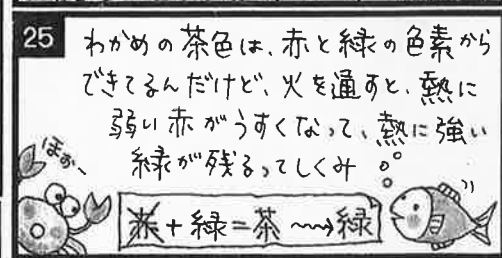 25
わかめの茶色は、赤と緑の色素から
できてるんだけど、火を通すと、熱に
弱い赤がうすくなって、熱に強い
緑が残るってしくみ
ほぉ〜
赤+緑=茶〜〜→緑